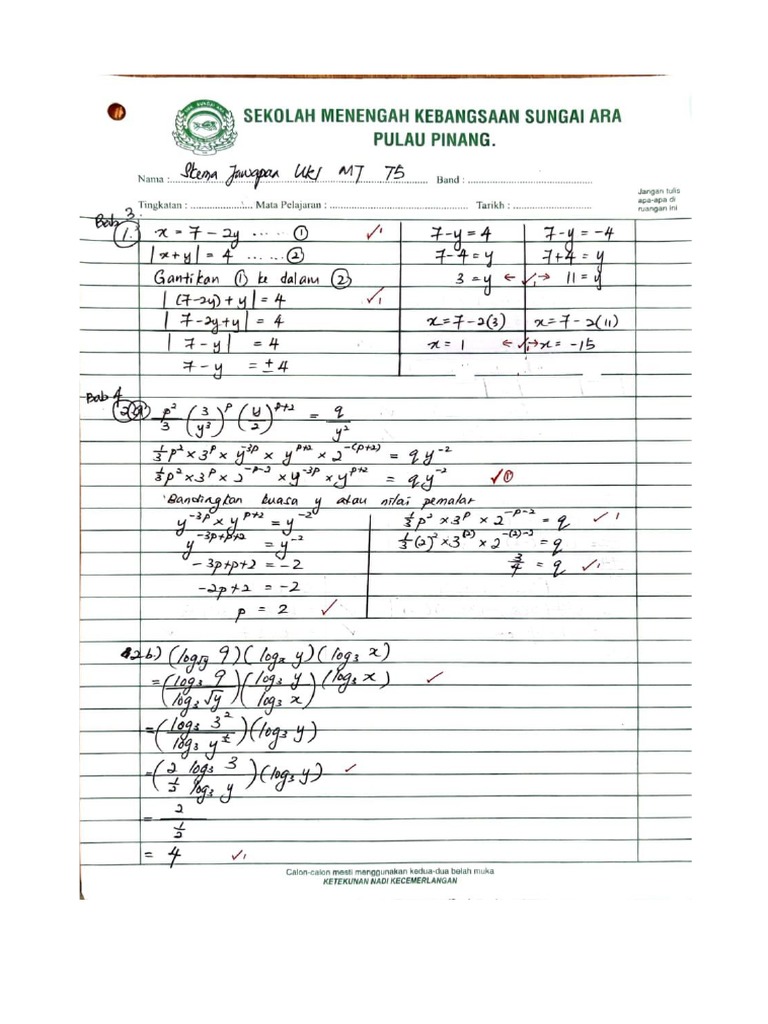 SMK SUNGAI ARA
SEKOLAH MENENGAH KEBANGSAAN SUNGAI ARA
PULAU PINANG.
Nama : Skema Jawapan UKJ MT T5 Band :
Jangan tulis
apa-apa di
ruangan ini
Tingkatan : Mata Pelajaran : Tarikh :
Bab 3.
1. x = 7 - 2y ..... ① ✓1
|x + y| = 4 ...... ②
Gantikan ① ke dalam ②
|(7-2y) + y| = 4 ✓1
|7 - 2y + y| = 4
|7 - y| = 4
7 - y = ±4
7-y = 4 | 7-y = -4
7-4 = y | 7+4 = y
3 = y ← ✓1 → 11 = y
x = 7-2(3) | x = 7-2(11)
x = 1 ← ✓1 → x = -15
Bab 4
2a) p²/3 (3/y³)^p (y/2)^(p+2) = q/y²
⅓p² × 3^p × y^(-3p) × y^(p+2) × 2^(-(p+2)) = q y^(-2)
⅓p² × 3^p × 2^(-p-2) × y^(-3p) × y^(p+2) = q y^(-2) ✓①
Bandingkan kuasa y atau nilai pemalar
y^(-3p) × y^(p+2) = y^(-2)
y^(-3p+p+2) = y^(-2)
-3p+p+2 = -2
-2p+2 = -2
p = 2 ✓
⅓p² × 3^p × 2^(-p-2) = q ✓1
⅓(2)² × 3^(2) × 2^(-(2)-2) = q
3/4 = q ✓1
2b) (log_√y 9)(log_x y)(log_3 x)
= (log_3 9 / log_3 √y)(log_3 y / log_3 x)(log_3 x) ✓
= (log_3 3² / log_3 y^½)(log_3 y)
= (2 log_3 3 / ½ log_3 y)(log_3 y) ✓
= 2 / ½
= 4 ✓1
Calon-calon mesti menggunakan kedua-dua belah muka
KETEKUNAN NADI KECEMERLANGAN